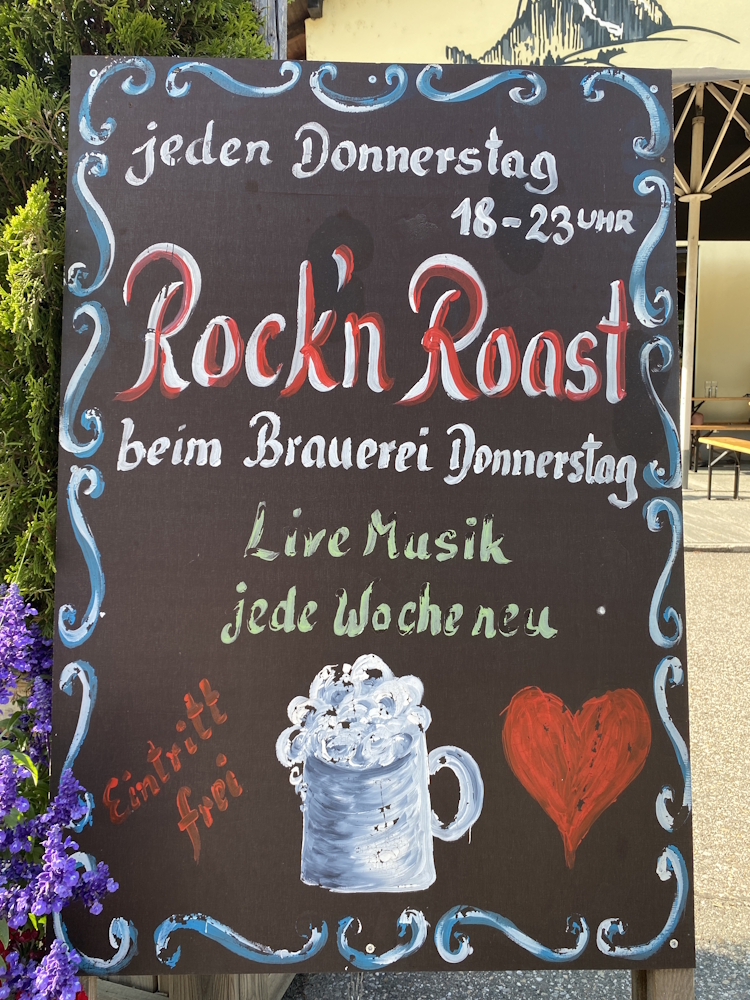 jeden Donnerstag
18-23 UHR
Rock'n Roast
beim Brauerei Donnerstag
Live Musik
jede Woche neu
Eintritt
frei